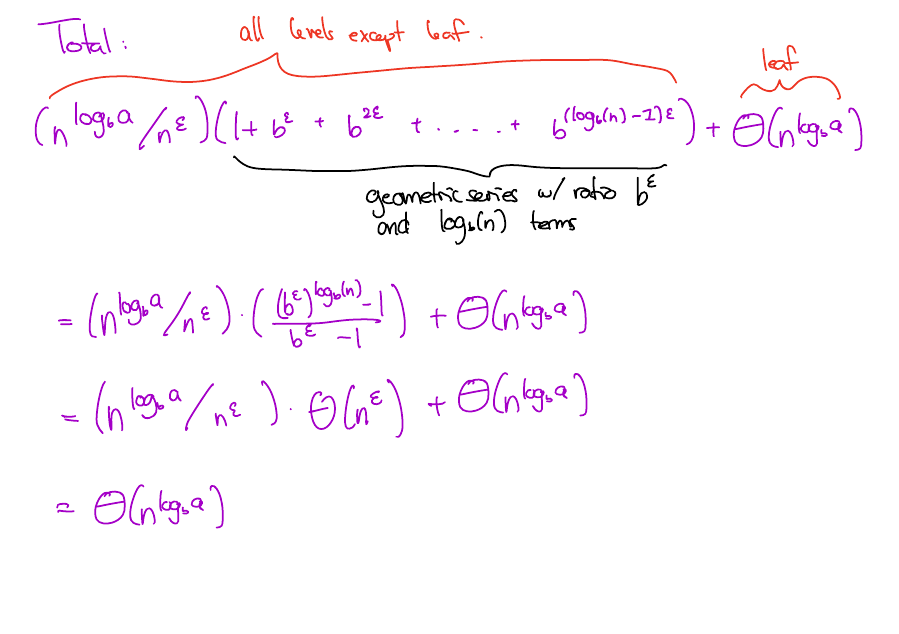 Total: all levels except leaf.
leaf
(n^{log_b a}/n^ε)(1 + b^ε + b^{2ε} + ..... + b^{(log_b(n) - 1)ε}) + Θ(n^{log_b a})
geometric series w/ ratio b^ε
and log_b(n) terms
= (n^{log_b a}/n^ε) · ( \frac{(b^ε)^{log_b(n)} - 1}{b^ε - 1} ) + Θ(n^{log_b a})
= (n^{log_b a}/n^ε) · Θ(n^ε) + Θ(n^{log_b a})
= Θ(n^{log_b a})